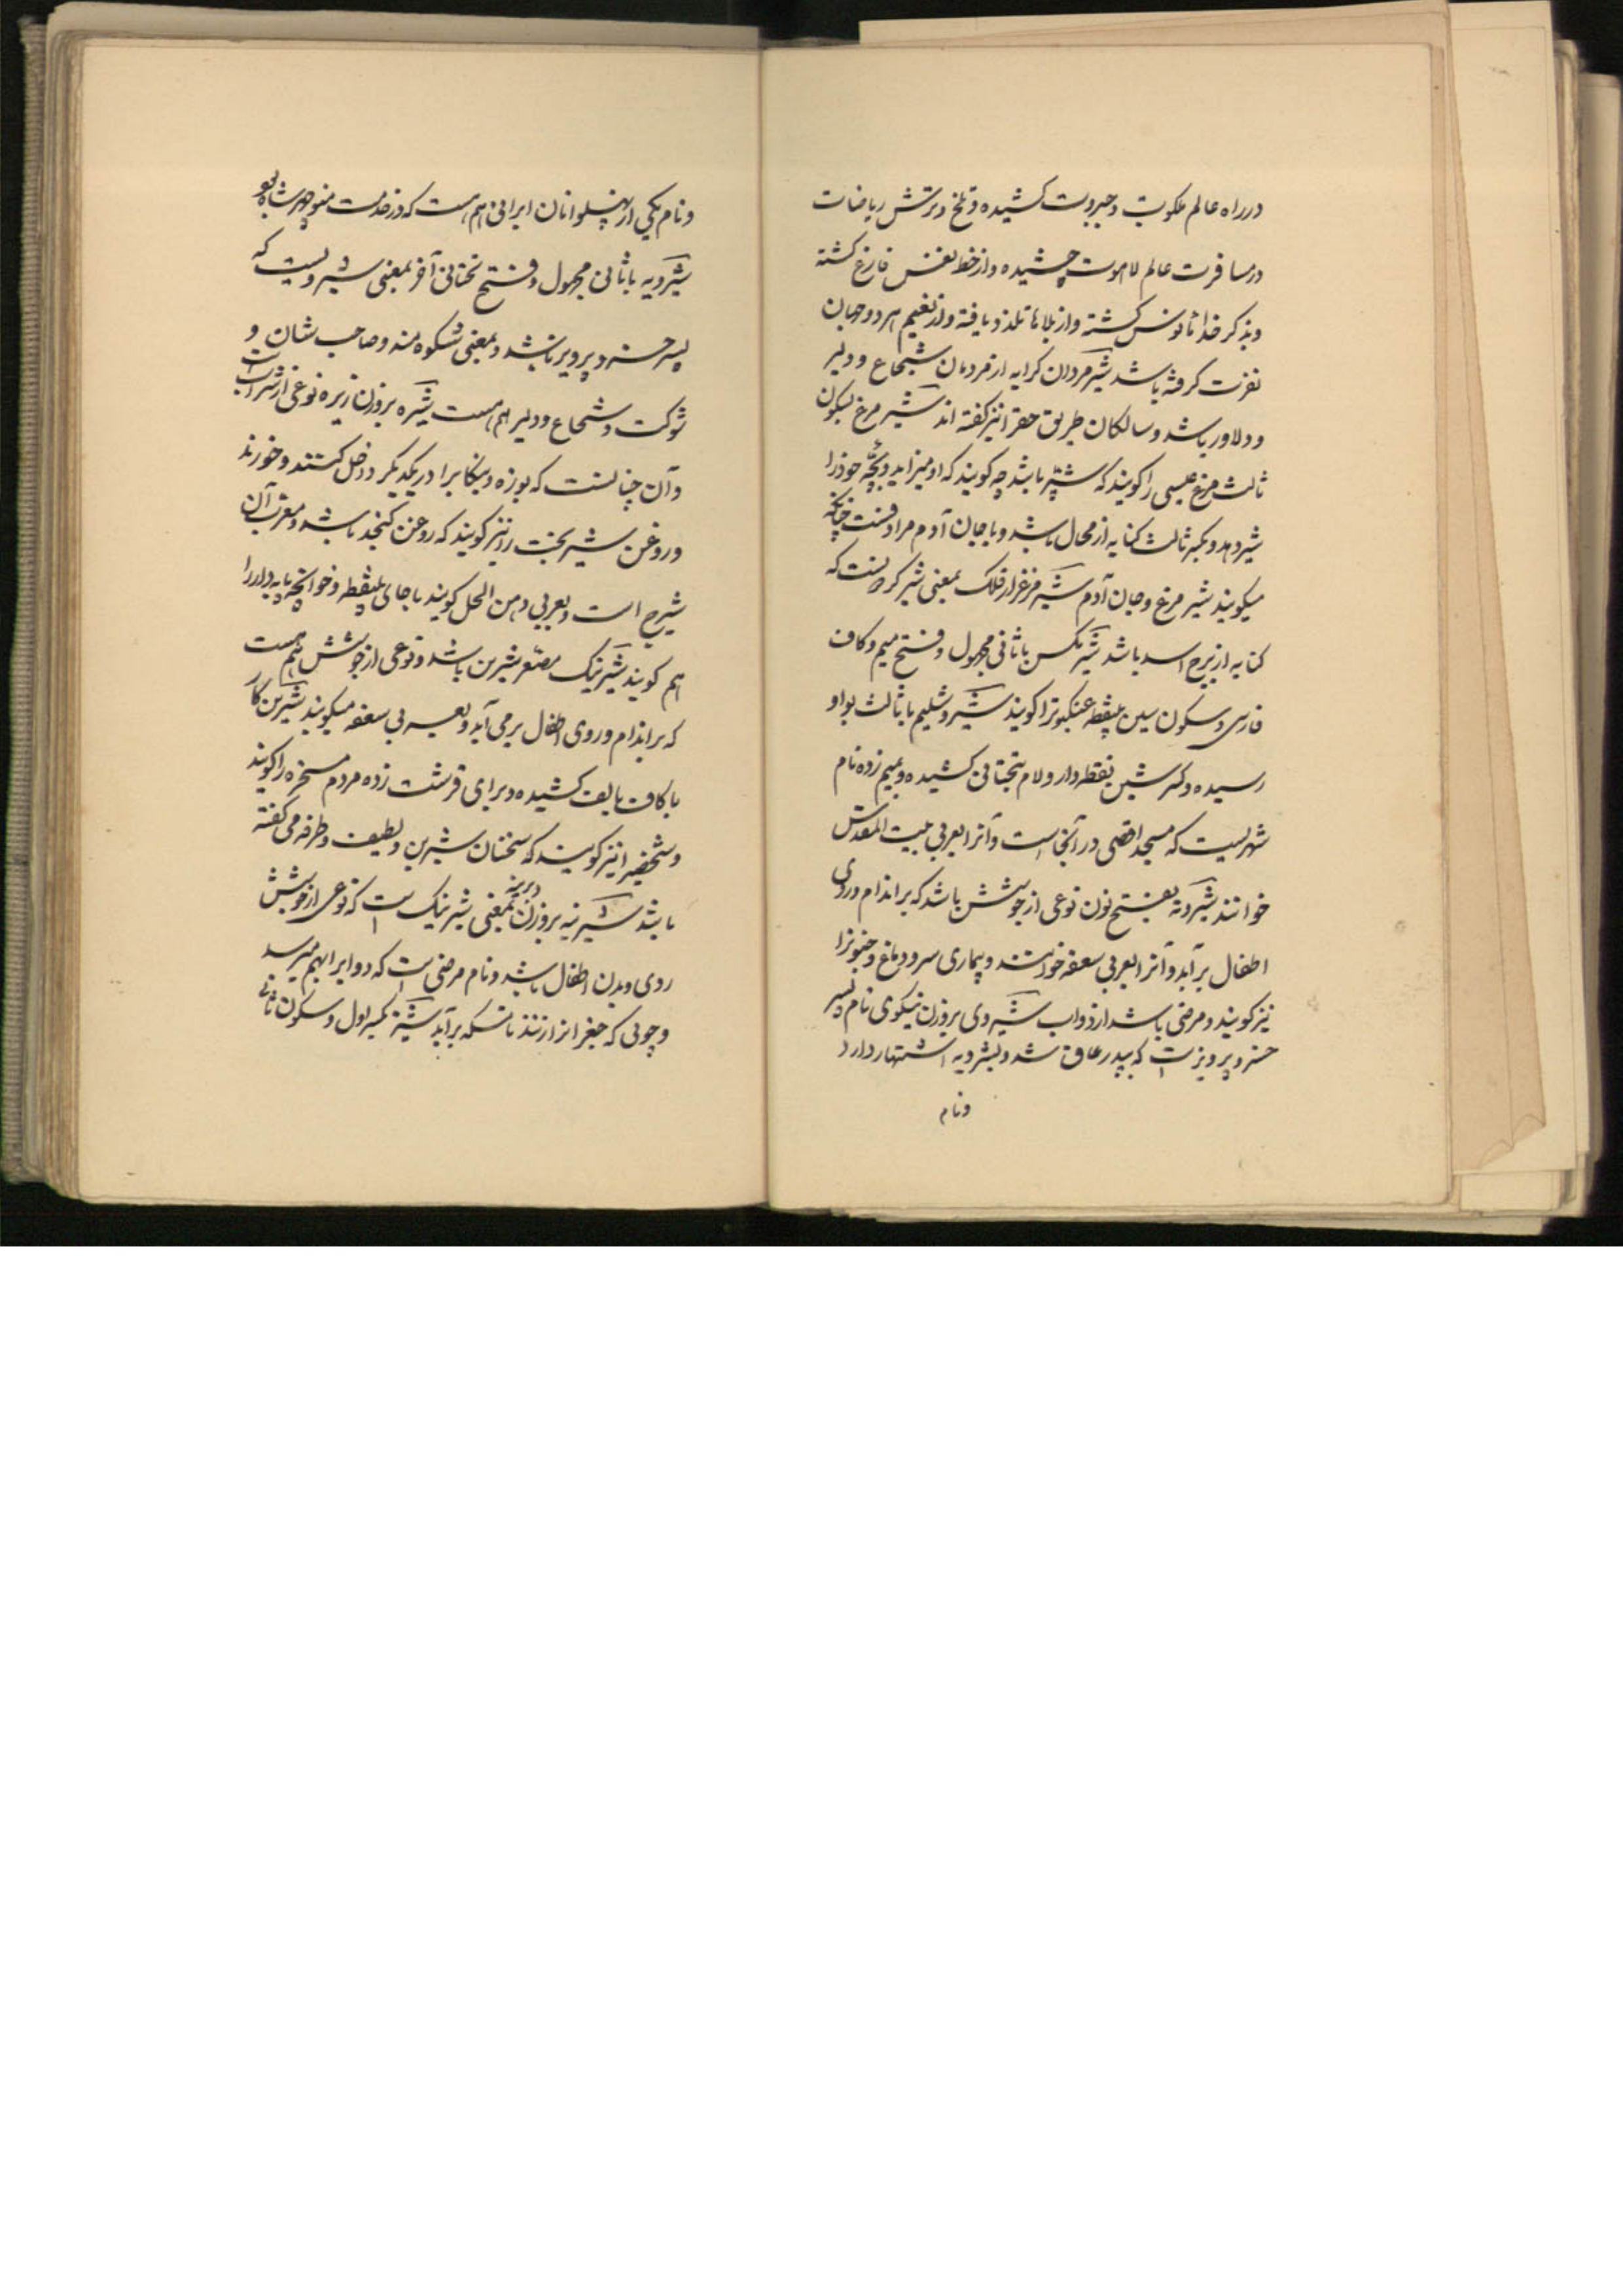 در راه عالم ملکوت و جبروت کشیده و تلخ و ترش ریاضات
در مسافرت عالم لاهوت چشیده و از خط نفس فارغ کشته
و بذکر خدا مانوس کشته و از بلاها تلذذ یافته و از نعیم هر دو جهان
نفرت کرفته باشد شیر مردان کرایه از مردمان شجاع و دلیر
و دلاور باشد و سالکان طریق حقرا نیز کفته اند شیر مرغ بسکون
ثالث مرغ عیسی را کویند که شپّر باشد چه کویند که او میزاید و بچّه خودرا
شیر دهد و بکسر ثالث کنایه از محال باشد و با جان آدم مرادفست چنانکه
میکویند شیر مرغ و جان آدم شیر مرغزار فلک بمعنی شیر کردنست که
کنایه از برج اسد باشد شیر مکس با ثانی مجهول و فتح میم و کاف
فارسی و سکون سین بینقطه عنکبوترا کویند شیروشلیم با ثالث بواو
رسیده و کسر شین نقطه دار و لام بتحتانی کشیده و بمیم زده نام
شهریست که مسجد اقصی در آنجاست و آنرا بعربی بیت المقدس
خوانند شیرونه بفتح نون نوعی از جوشش باشد که بر اندام و روی
اطفال بر آید و آنرا بعربی سعفه خوانند و بیماری سر و دماغ و جنونرا
نیز کویند و مرضی باشد از دواب شیروی بر وزن نیکوی نام پسر
خسرو پرویز است که بپدر عاق شد و بشرویه اشتهار دارد
و نام
و نام یکی از پهلوانان ایرانی هم هست که در خدمت منوچهر شاه بود
شیرویه با ثانی مجهول و فتح تحتانی آخر بمعنی شیرویست که
پسر خسرو پرویز باشد و بمعنی شکوهمند و صاحب شان و
شوکت و شجاع و دلیر هم هست شیره بر وزن زیره نوعی از شرابست
و آن چنانست که بوزه و بنکابرا در یکدیکر داخل کنند و خورند
و روغن شیر بخت را نیز کویند که روغن کنجد باشد و معرب آن
شیرج است و بعربی دهن الحل کویند با حای بینقطه و خوانچه پایه دار را
هم کویند شیرینک مصغر شیرین باشد و نوعی از جوشش هم هست
که بر اندام و روی اطفال برمی آید و بعربی سعفه میکویند شیرین کار
با کاف بالف کشیده و برای قرشت زده مردم مسخره را کویند
و شخصیرا نیز کویند که سخنان شیرین و لطیف و طرفه می کفته
باشد شیرینه بر وزن دیرینه بمعنی شیرینک است که نوعی از جوشش
روی و بدن اطفال باشد و نام مرضی است که دوابرا بهم میرسد
و چوبی که جغراترا زنند تا مسکه بر آید شیز بکسر اول و سکون ثانی